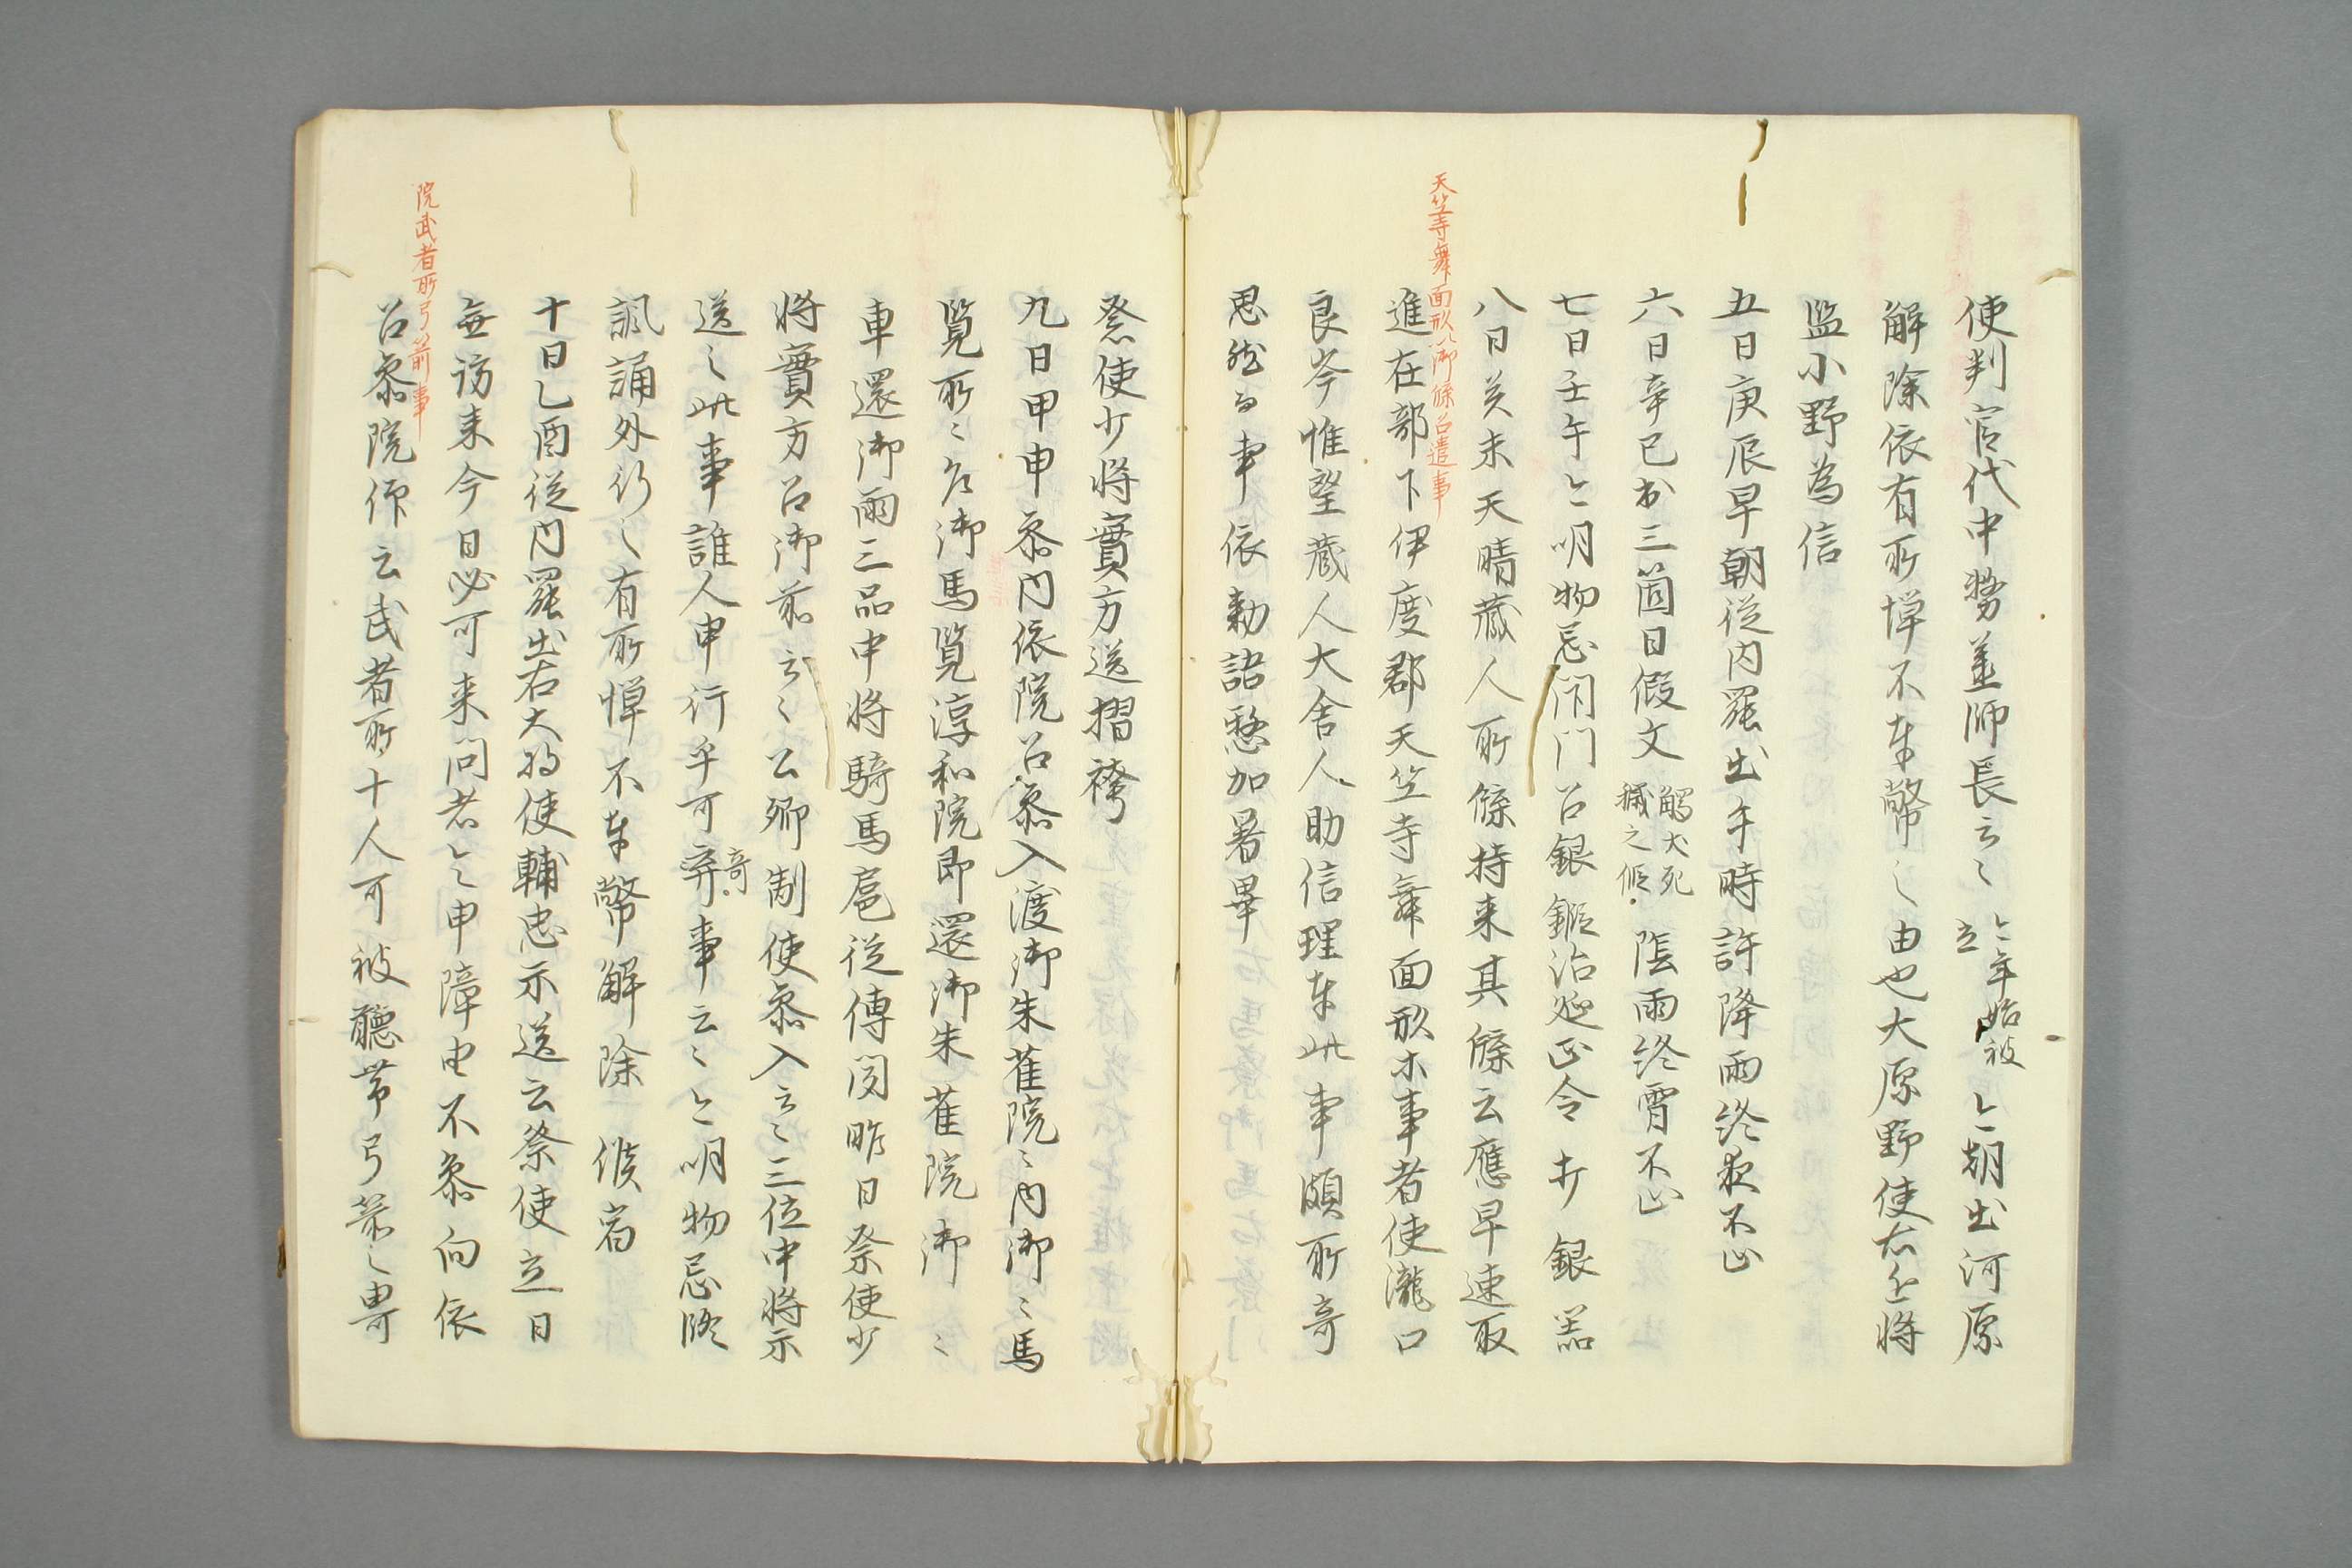 使判官代中務並師長云〻 今年始被立 今朝出河原
解除依有所憚不奉幣之由也大原野使右近将
監小野為信
五日庚辰早朝従内罷出午時許降雨終夜不止
六日辛巳出三箇日假文 觸犬死穢之假 陰雨終宵不止
七日壬午今明物忌閇門召銀鍛冶延正令打銀器
天竺寺舞面形以御牒召遣事
八日癸未天晴蔵人所牒持来其牒云應早速取
進在部下伊度郡天竺寺舞面形等事者使瀧口
良岑惟望蔵人大舎人助信理奉此事頗所奇
思然而事依勅語慗加署畢
祭使少将實方送摺袴
九日甲申参内依院召参入渡御朱雀院〻内御〻馬
覧所〻召御馬覧淳和院即還御朱雀院御〻
車還御雨三品中将騎馬扈従傳聞昨日祭使少
将實方召御前云〻公卿制使参入云〻三位中将示
送之此事誰人申行乎可弃奇事云〻今明物忌修
諷誦外行之有所憚不奉幣解除候宿
十日乙酉従内罷出右大将使輔忠示送云祭使立日
無訪来今日必可来問者今〻申障由不参向依
院武者所弓箭事
召参院仰云武者所十人可被聴帯弓箭之由可